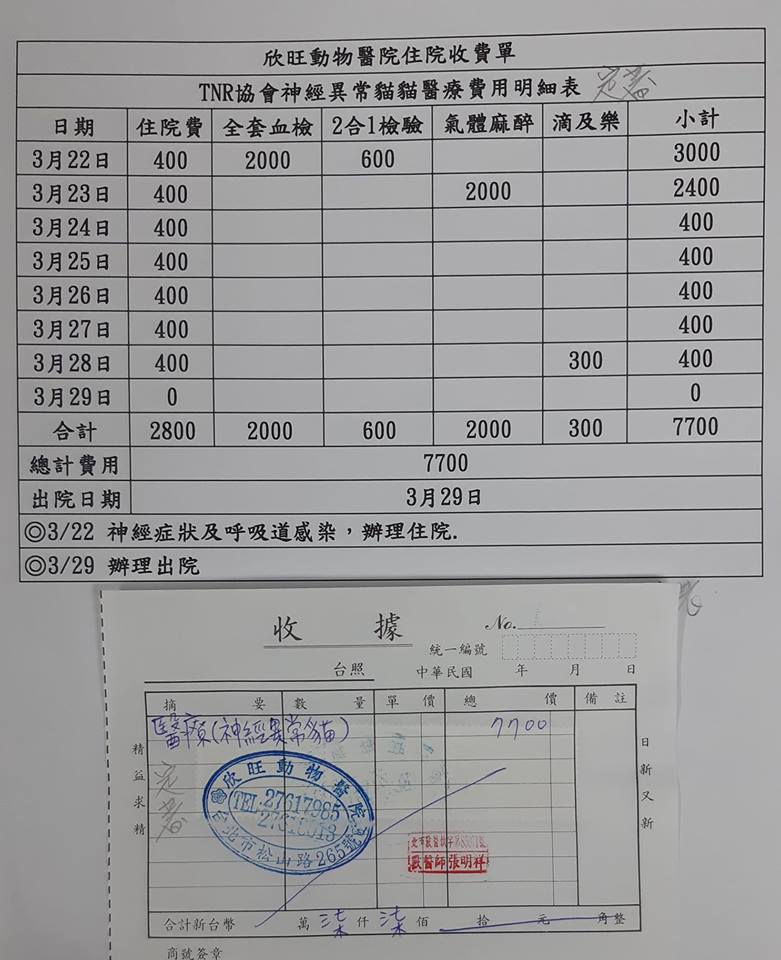 欣旺動物醫院住院收費單
TNR協會神經異常貓貓醫療費用明細表
日期 住院費 全套血檢 2合1檢驗 氣體麻醉 滴及樂 小計
3月22日 400 2000 600 3000
3月23日 400 2000 2400
3月24日 400 400
3月25日 400 400
3月26日 400 400
3月27日 400 400
3月28日 400 300 400
3月29日 0 0
合計 2800 2000 600 2000 300 7700
總計費用 7700
出院日期 3月29日
◎3/22 神經症狀及呼吸道感染，辦理住院.
◎3/29 辦理出院
收據 No.
統一編號
台照 中華民國 年 月 日
摘要 數量 單價 總價 備註
醫療(神經異常貓) 7700
精益求精
日新又新
欣旺動物醫院
TEL:27617985
台北市松山路265號
獸醫師張明祥
合計新台幣 萬 柒 仟 柒 佰 拾 元 角整
商號簽章